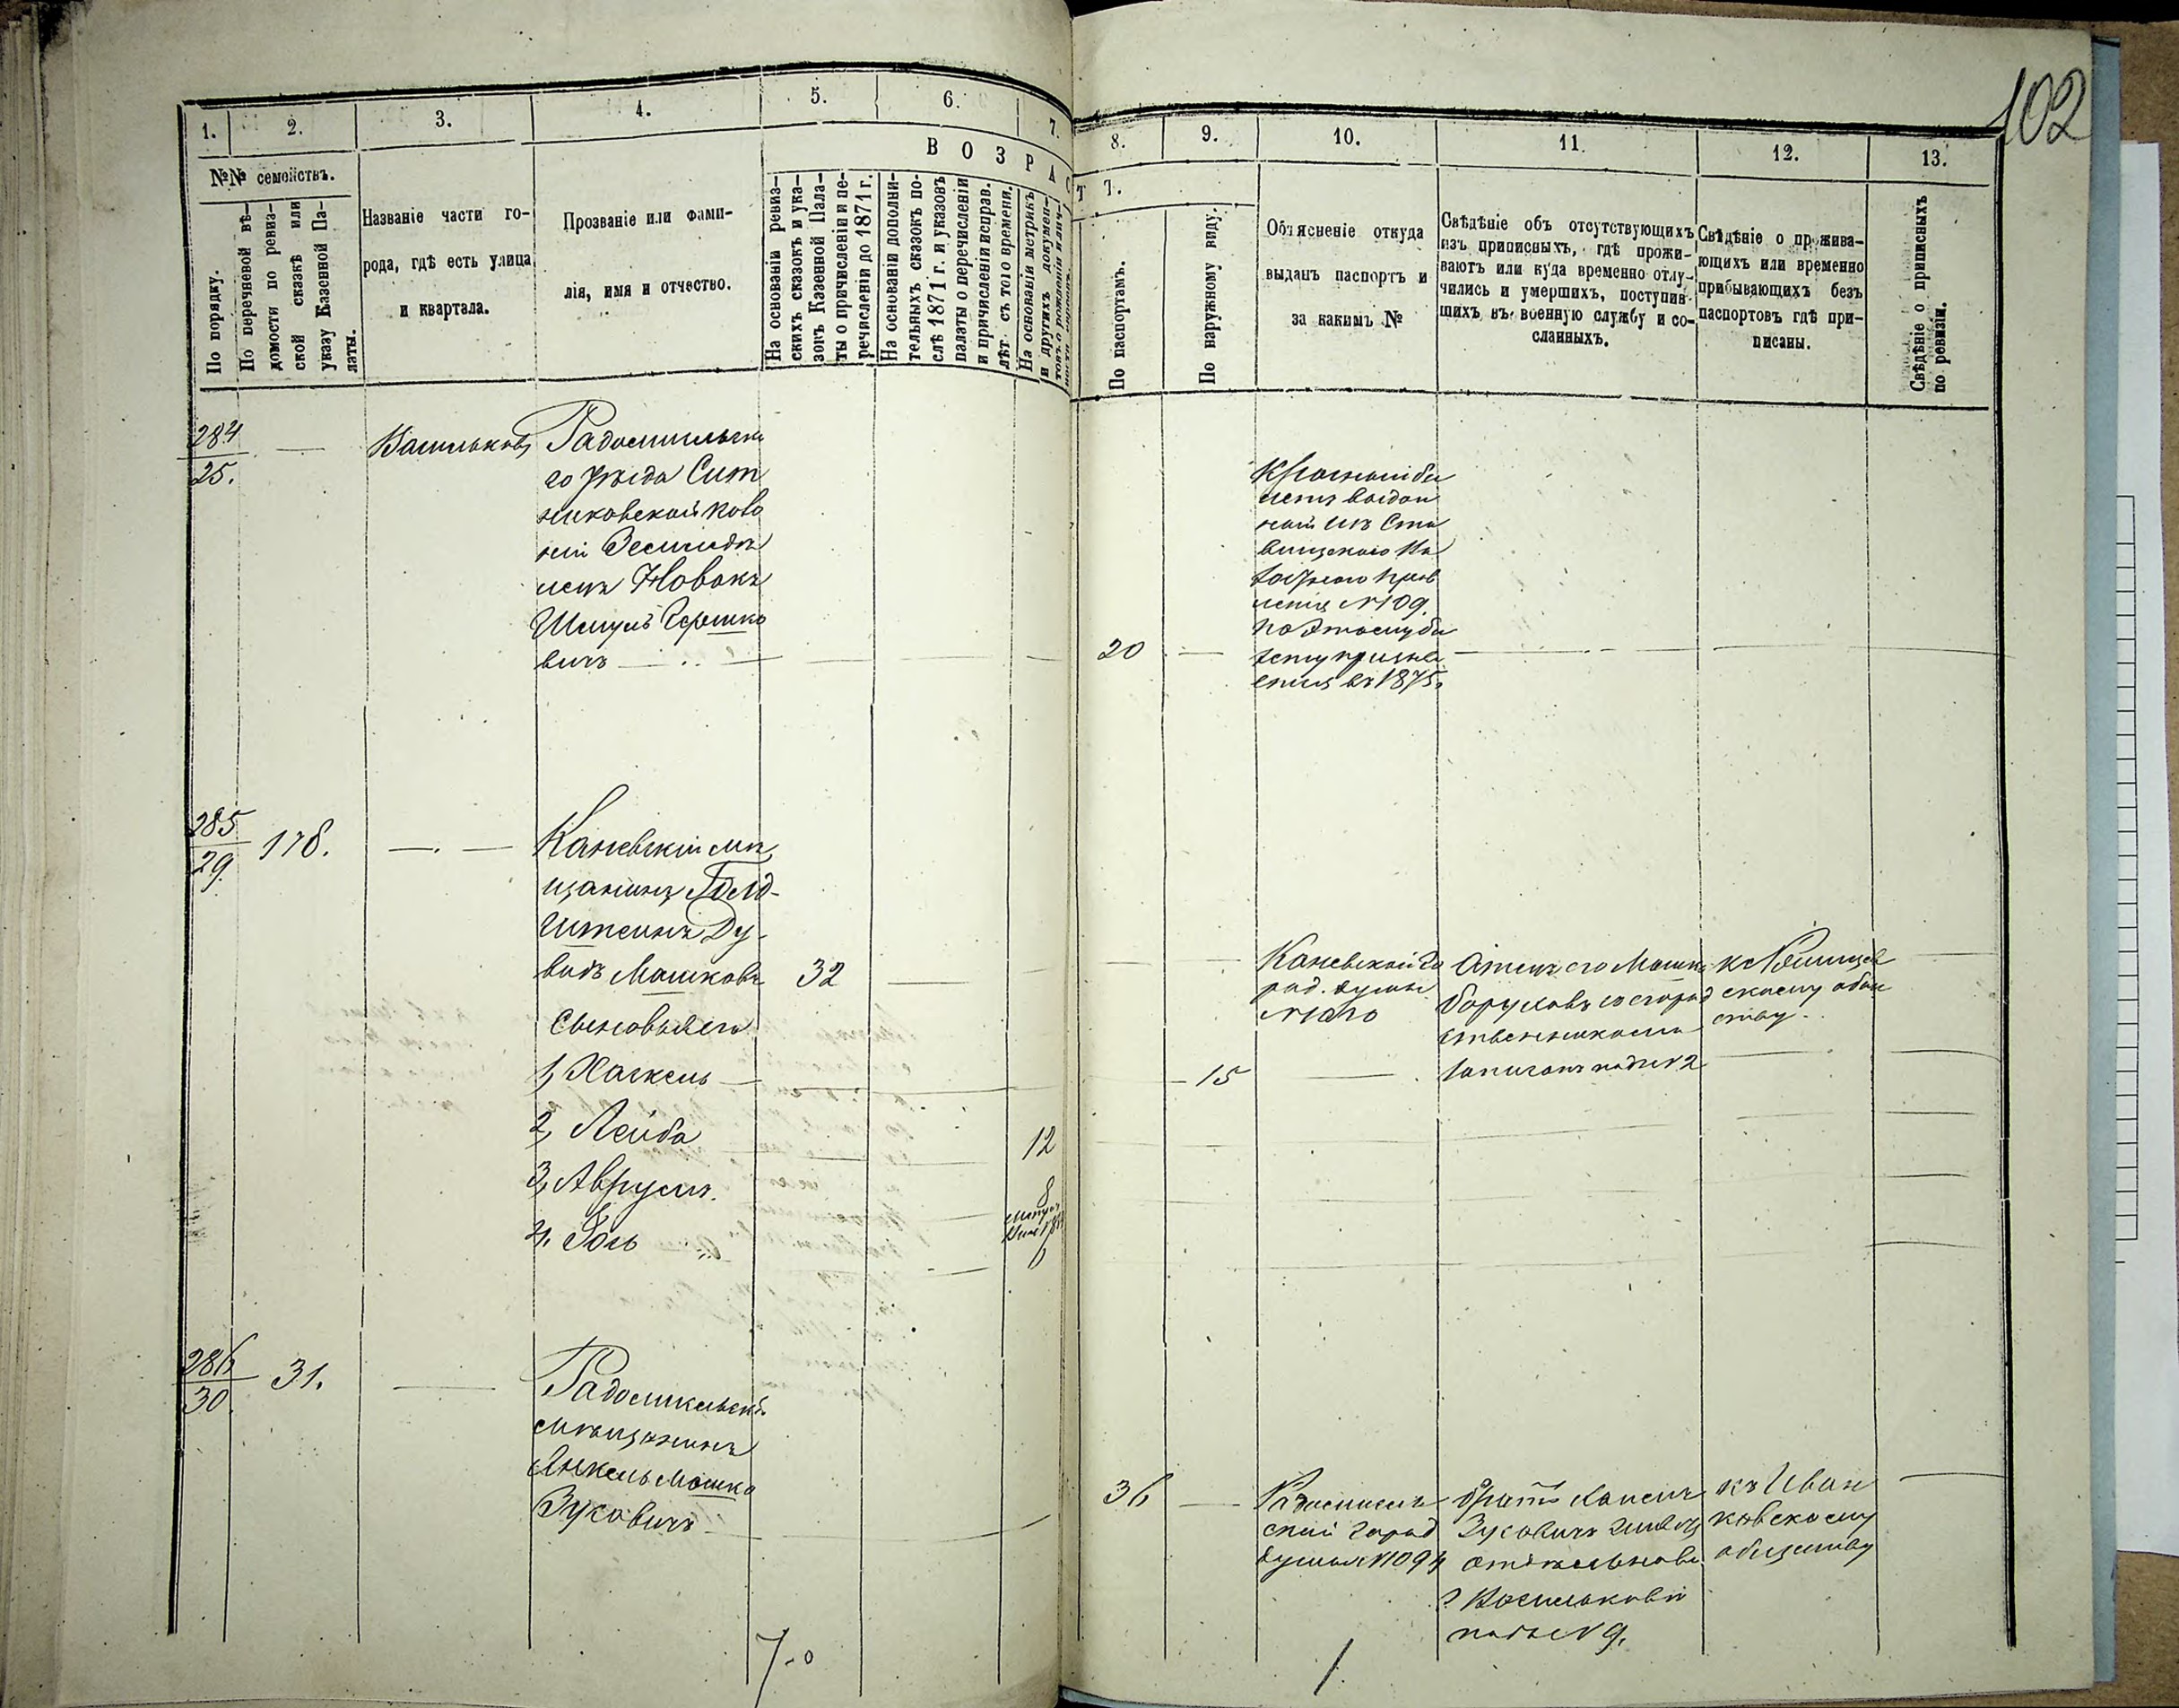 102
1.
2.
3.
4.
5.
6.
7.
8.
9.
10.
11.
12.
13.
№№ семействъ.
ВОЗРАС
Т
7.
По порядку.
По перечневой вѣ-
домости по ревиз-
ской сказкѣ или
указу Казенной Па-
латы.
Названіе части го-
рода, гдѣ есть улица
и квартала.
Прозваніе или фами-
лія, имя и отчество.
На основаніи ревиз-
скихъ сказокъ и ука-
зокъ Казенной Пала-
ты о причисленіи и пе-
речисленіи до 1871 г.
На основаніи дополни-
тельныхъ сказокъ по-
слѣ 1871 г. и указовъ
палаты о перечисленіи
и причисленіи исправ.
лѣт. съ того времени.
На основаніи метрикъ
и другихъ докумен-
товъ о рожденіи
По паспортамъ.
По наружному виду.
Объясненіе откуда
выданъ паспортъ и
за какимъ №
Свѣдѣніе объ отсутствующихъ
изъ приписныхъ, гдѣ прожи-
ваютъ или куда временно отлу-
чились и умершихъ, поступив-
шихъ въ военную службу и со-
сланныхъ.
Свѣдѣніе о прожива-
ющихъ или временно
прибывающихъ безъ
паспортовъ гдѣ при-
писаны.
Свѣдѣніе о приписныхъ
по ревизіи.
284
25.
—
Васильковъ
Радомысльска
го уѣзда Сит
никовской коло
ніи Земледѣ
лецъ Новакъ
Шмуль Гершко
вичъ
20
Красный би
летъ выдан
ный изъ Ста
вищскаго Во
лостного прав
ленія №109.
По этому би
лету призна
ется въ 1875.
285
29.
178.
Каневскій мѣ
щанинъ Голд-
штейнъ Ду-
видъ Мошковъ
32
Каневской Го
род. думы
№1010
Отецъ его Мошко
Боруховъ съ его род
ственниками
записанъ подъ №2
скому обще
ству.
Сыновья его
1, Хаскель
15
2, Лейба
12
3, Аврумъ.
8
4. Іось
6
286
30.
31.
Радомысльскій
мѣщанинъ
Янкель Мошко
Зуковичъ
36
Радомысль
ской город
думы №1094
братъ
Зуковичъ живетъ
отдѣльно въ
г. Васильковѣ
подъ № 9.
къ Иван
ковскому
обществу
7.0
1.